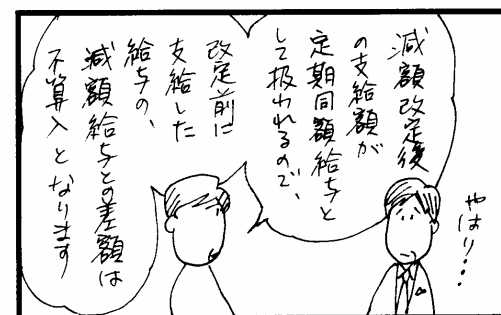 減額改定後
の支給額が
定期同額給与と
して扱われるので、
改定前に
支給した
給与の、
減額給与との差額は
不算入となります
やはり・・・